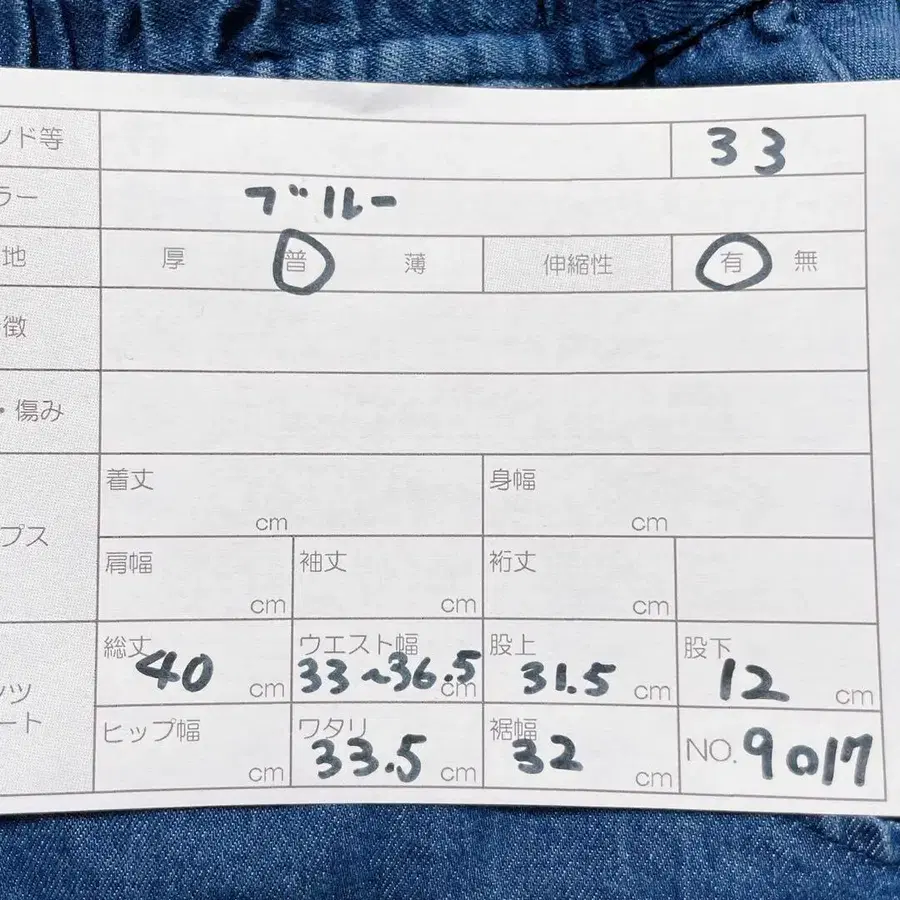 ンド等 33
ラー ブルー
地 厚 普 薄 伸縮性 有 無
徴
・傷み
プス 着丈 cm 身幅 cm
肩幅 cm 袖丈 cm 裄丈 cm
ンツ 総丈 40 cm ウエスト幅 33~36.5 cm 股上 31.5 cm 股下 12 cm
ート ヒップ幅 cm ワタリ 33.5 cm 裾幅 32 cm NO.9017